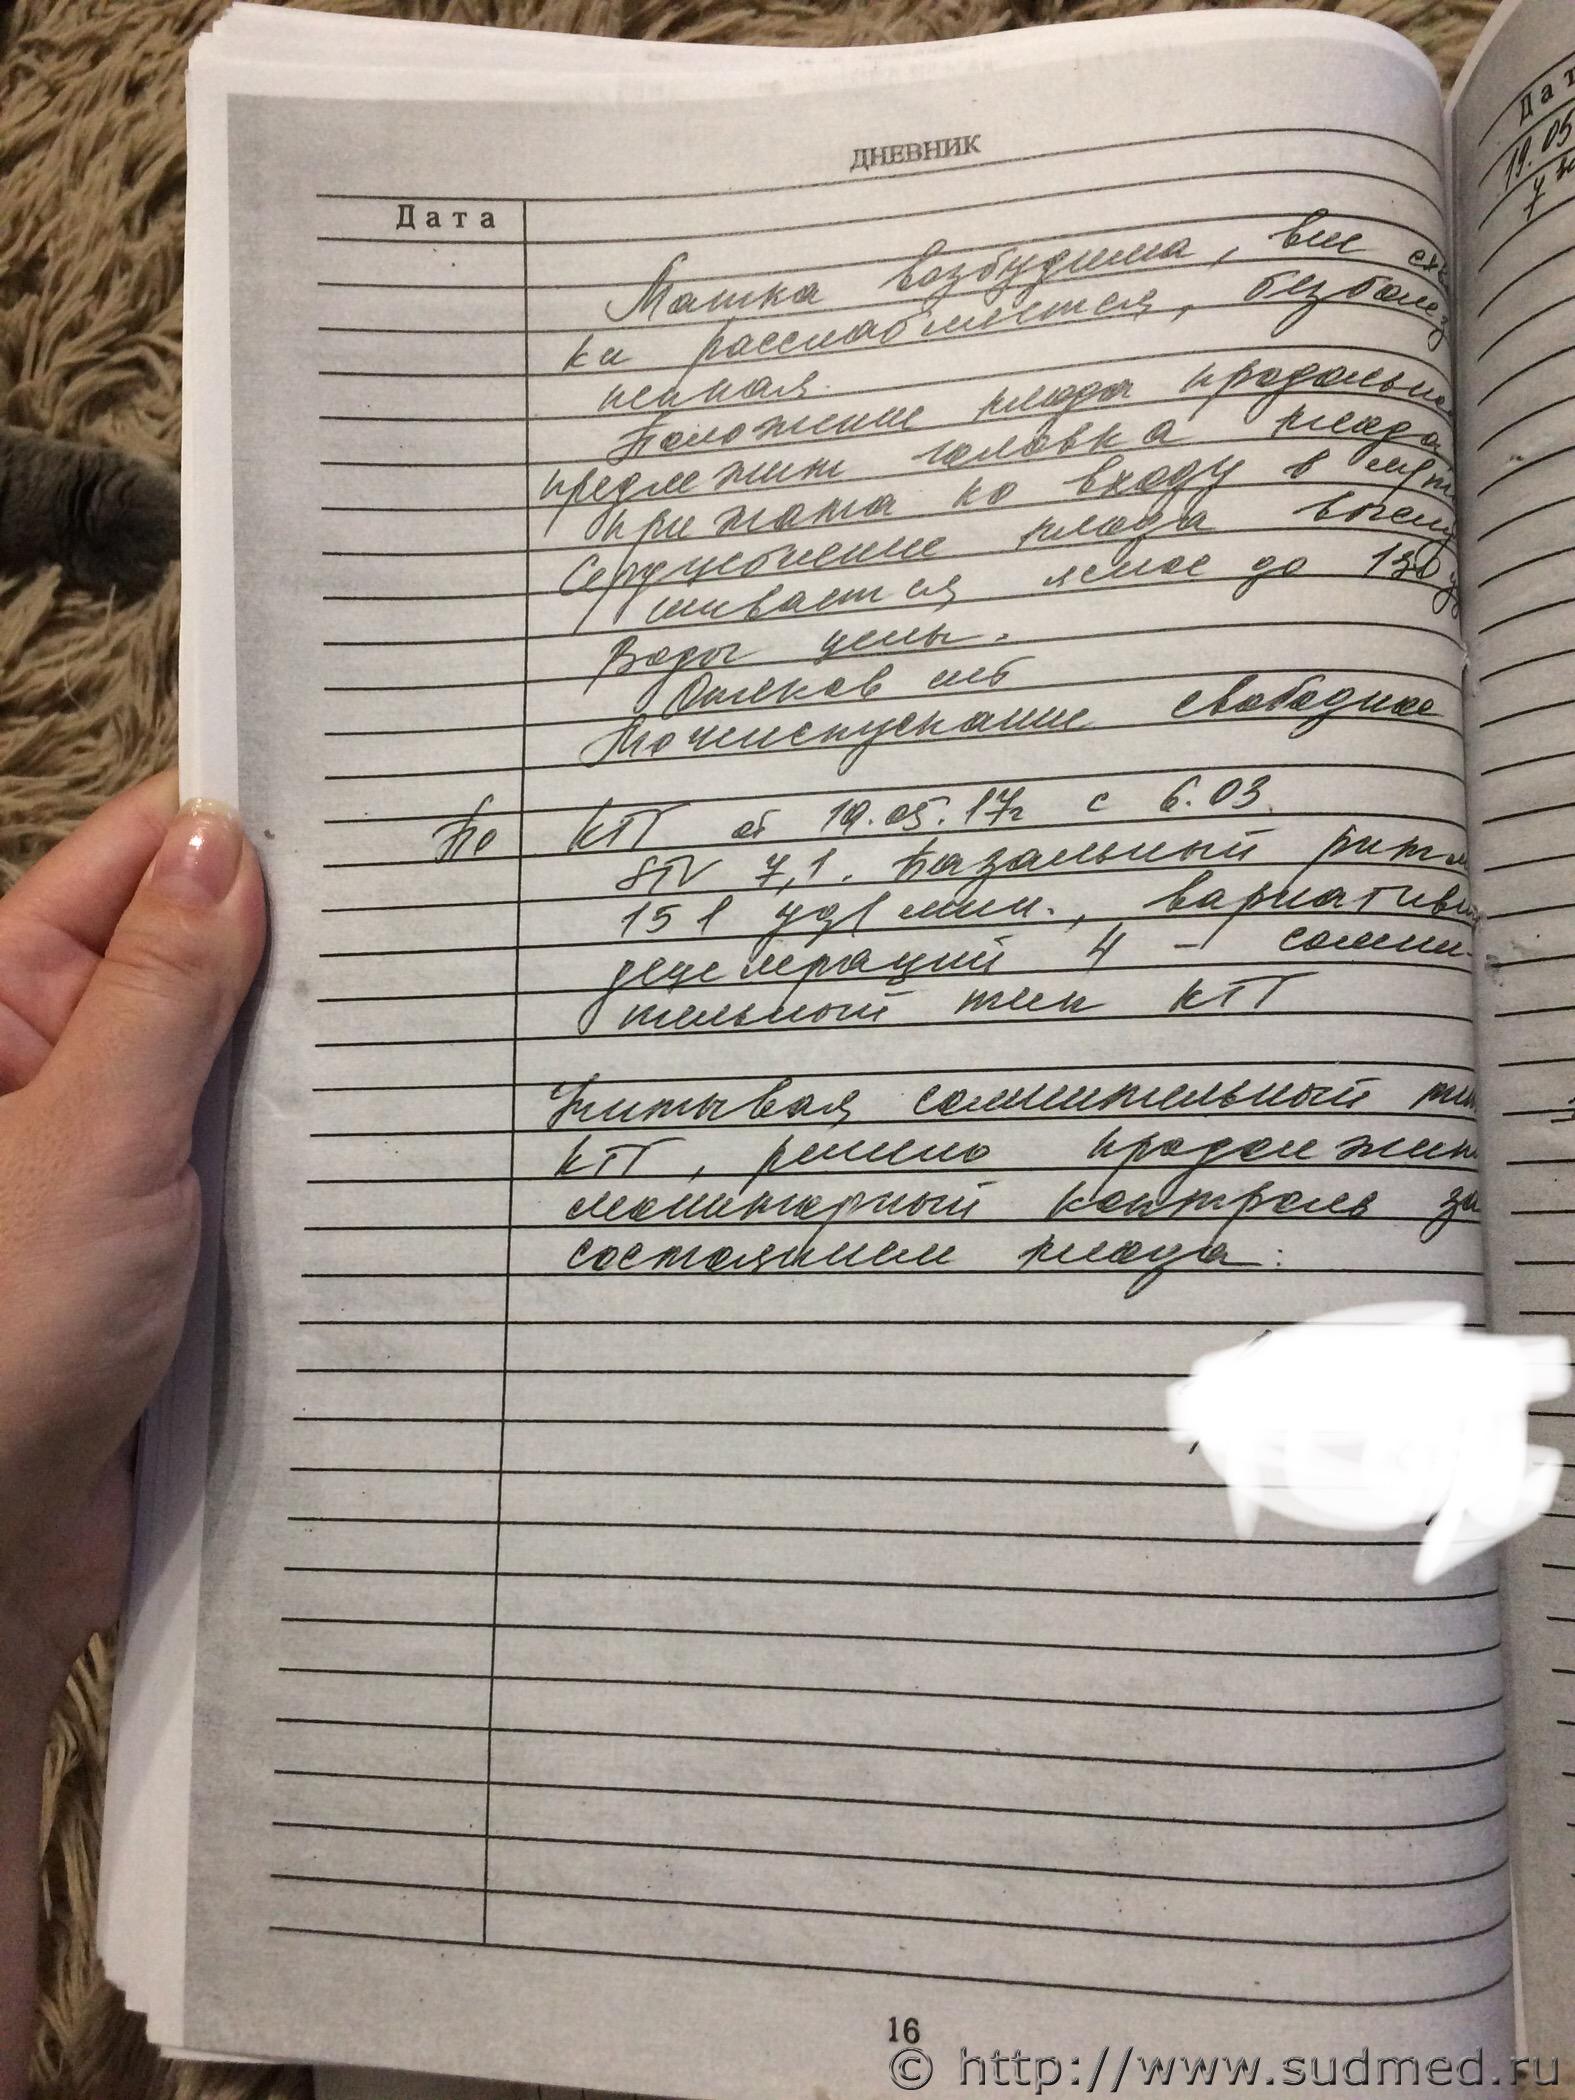 ДНЕВНИК
Дата
Матка возбудима, вне схв
ки расслабляется, безболез
ненная.
Положение плода продольное
предлежит головка плода
прижата ко входу в м/т
Сердцебиение плода выслу
шивается ясное до 130 у
Воды целы.
Отеков нет
Мочеиспускание свободное
По КТГ от 19.05.17г с 6.03
STV 7,1. Базальный ритм
151 уд/мин., вариативн
децелераций 4 - сомни-
тельный тип КТГ
Учитывая сомнительный тип
КТГ, решено продолжить
мониторный контроль за
состоянием плода.
16
© http://www.sudmed.ru
Дат
19.05
7